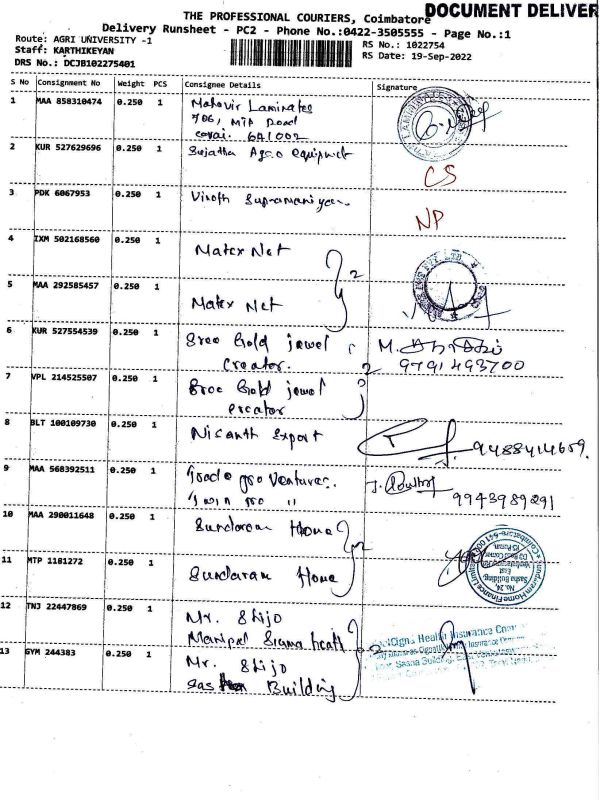 DOCUMENT DELIVER
THE PROFESSIONAL COURIERS, Coimbatore
Delivery Runsheet - PC2 - Phone No.:0422-3505555 - Page No.:1
Route: AGRI UNIVERSITY -1
Staff: KARTHIKEYAN
DRS No.: DCJB102275401
RS No.: 1022754
RS Date: 19-Sep-2022
S No Consignment No Weight PCS Consignee Details Signature
1 MAA 858310474 0.250 1 Mahavir Laminates
MTP Road
641002
2 KUR 527629696 0.250 1 Sujatha Agro equipment CS
3 PDK 6067953 0.250 1 NP
4 IXM 502168560 0.250 1 Matex Net 2
5 MAA 292585457 0.250 1 Matex Net
6 KUR 527554539 0.250 1 Sree Gold jewel
creator. 2
9791493700
7 VPL 214525507 0.250 1 Sree Gold jewel
creator
8 BLT 100109730 0.250 1 Nisanth Export 9488414659.
9 MAA 568392511 0.250 1 pro Ventures.
9943989291
10 MAA 290011648 0.250 1 Sundaram Home 2
11 MTP 1181272 0.250 1 Sundaram Home
12 TNJ 22447869 0.250 1 Mr. Shijo
Manipal 2
Health Insurance
13 GYM 244383 0.250 1 Mr. Shijo
Building